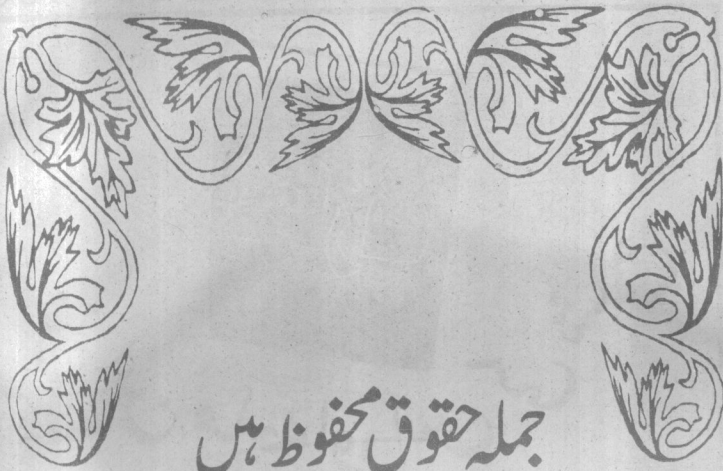 جملہ حقوق محفوظ ہیں